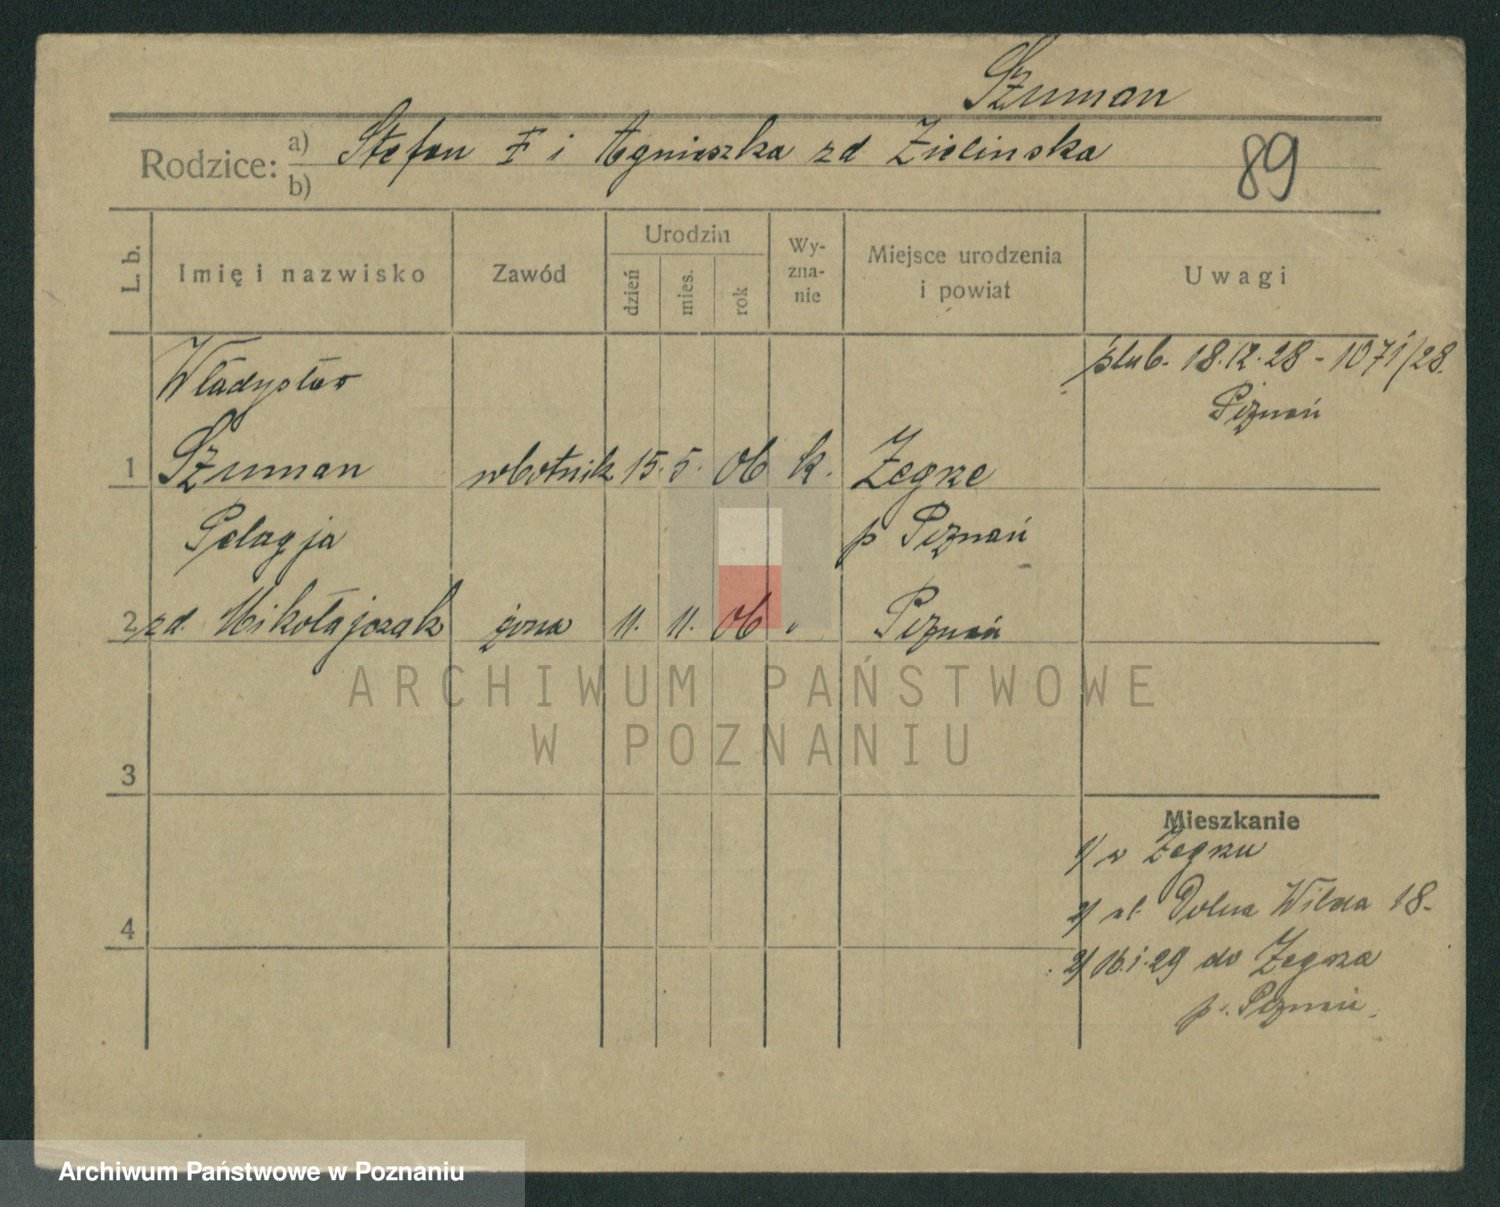 Szuman
Rodzice: a) Stefan ‡ i Agnieszka zd Zielinska
b)
L. b. Imię i nazwisko Zawód Urodzin dzień mies. rok Wy-zna-nie Miejsce urodzenia i powiat Uwagi
89
Władysław
ślub. 18.12.28 - 1071/28.
Poznań
1 Szuman robotnik 15. 5. 06 k. Zegrze
Pelagja p Poznań
2 zd. Mikołajczak żona 11. 11. 06 " Poznań
ARCHIWUM PAŃSTWOWE
W POZNANIU
3
Mieszkanie
1/ w Zegrzu
4
2/ ul. Dolna Wilda 18.
2/ 16.1.29 do Zegrza
p. Poznań.
Archiwum Państwowe w Poznaniu